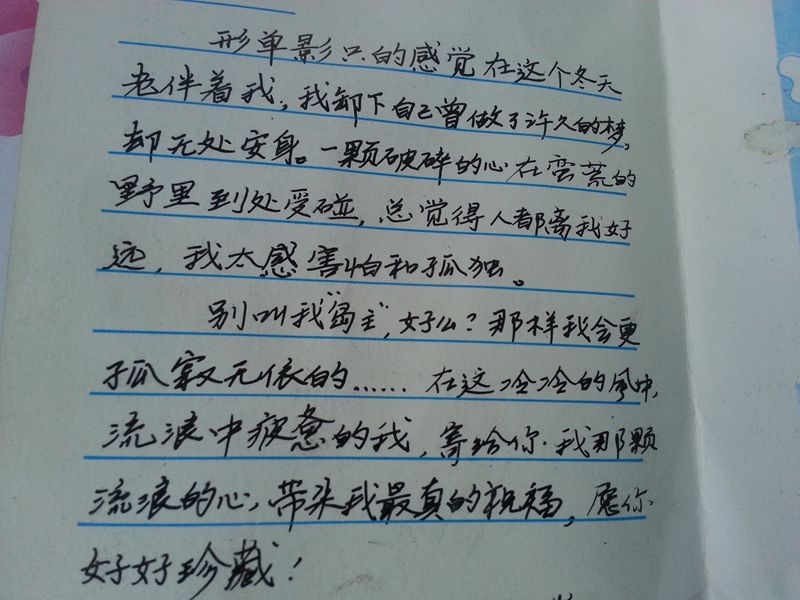 形单影只的感觉在这个冬天
老伴着我，我卸下自己曾做了许久的梦，
却无处安身。一颗破碎的心在蛮荒的
野里到处受碰，总觉得人都离我好
远，我太感害怕和孤独。
别叫我"岛主"，好么？那样我会更
孤寂无依的……在这冷冷的风中，
流浪中疲惫的我，寄给你我那颗
流浪的心，带来我最真的祝福，愿你
好好珍藏！